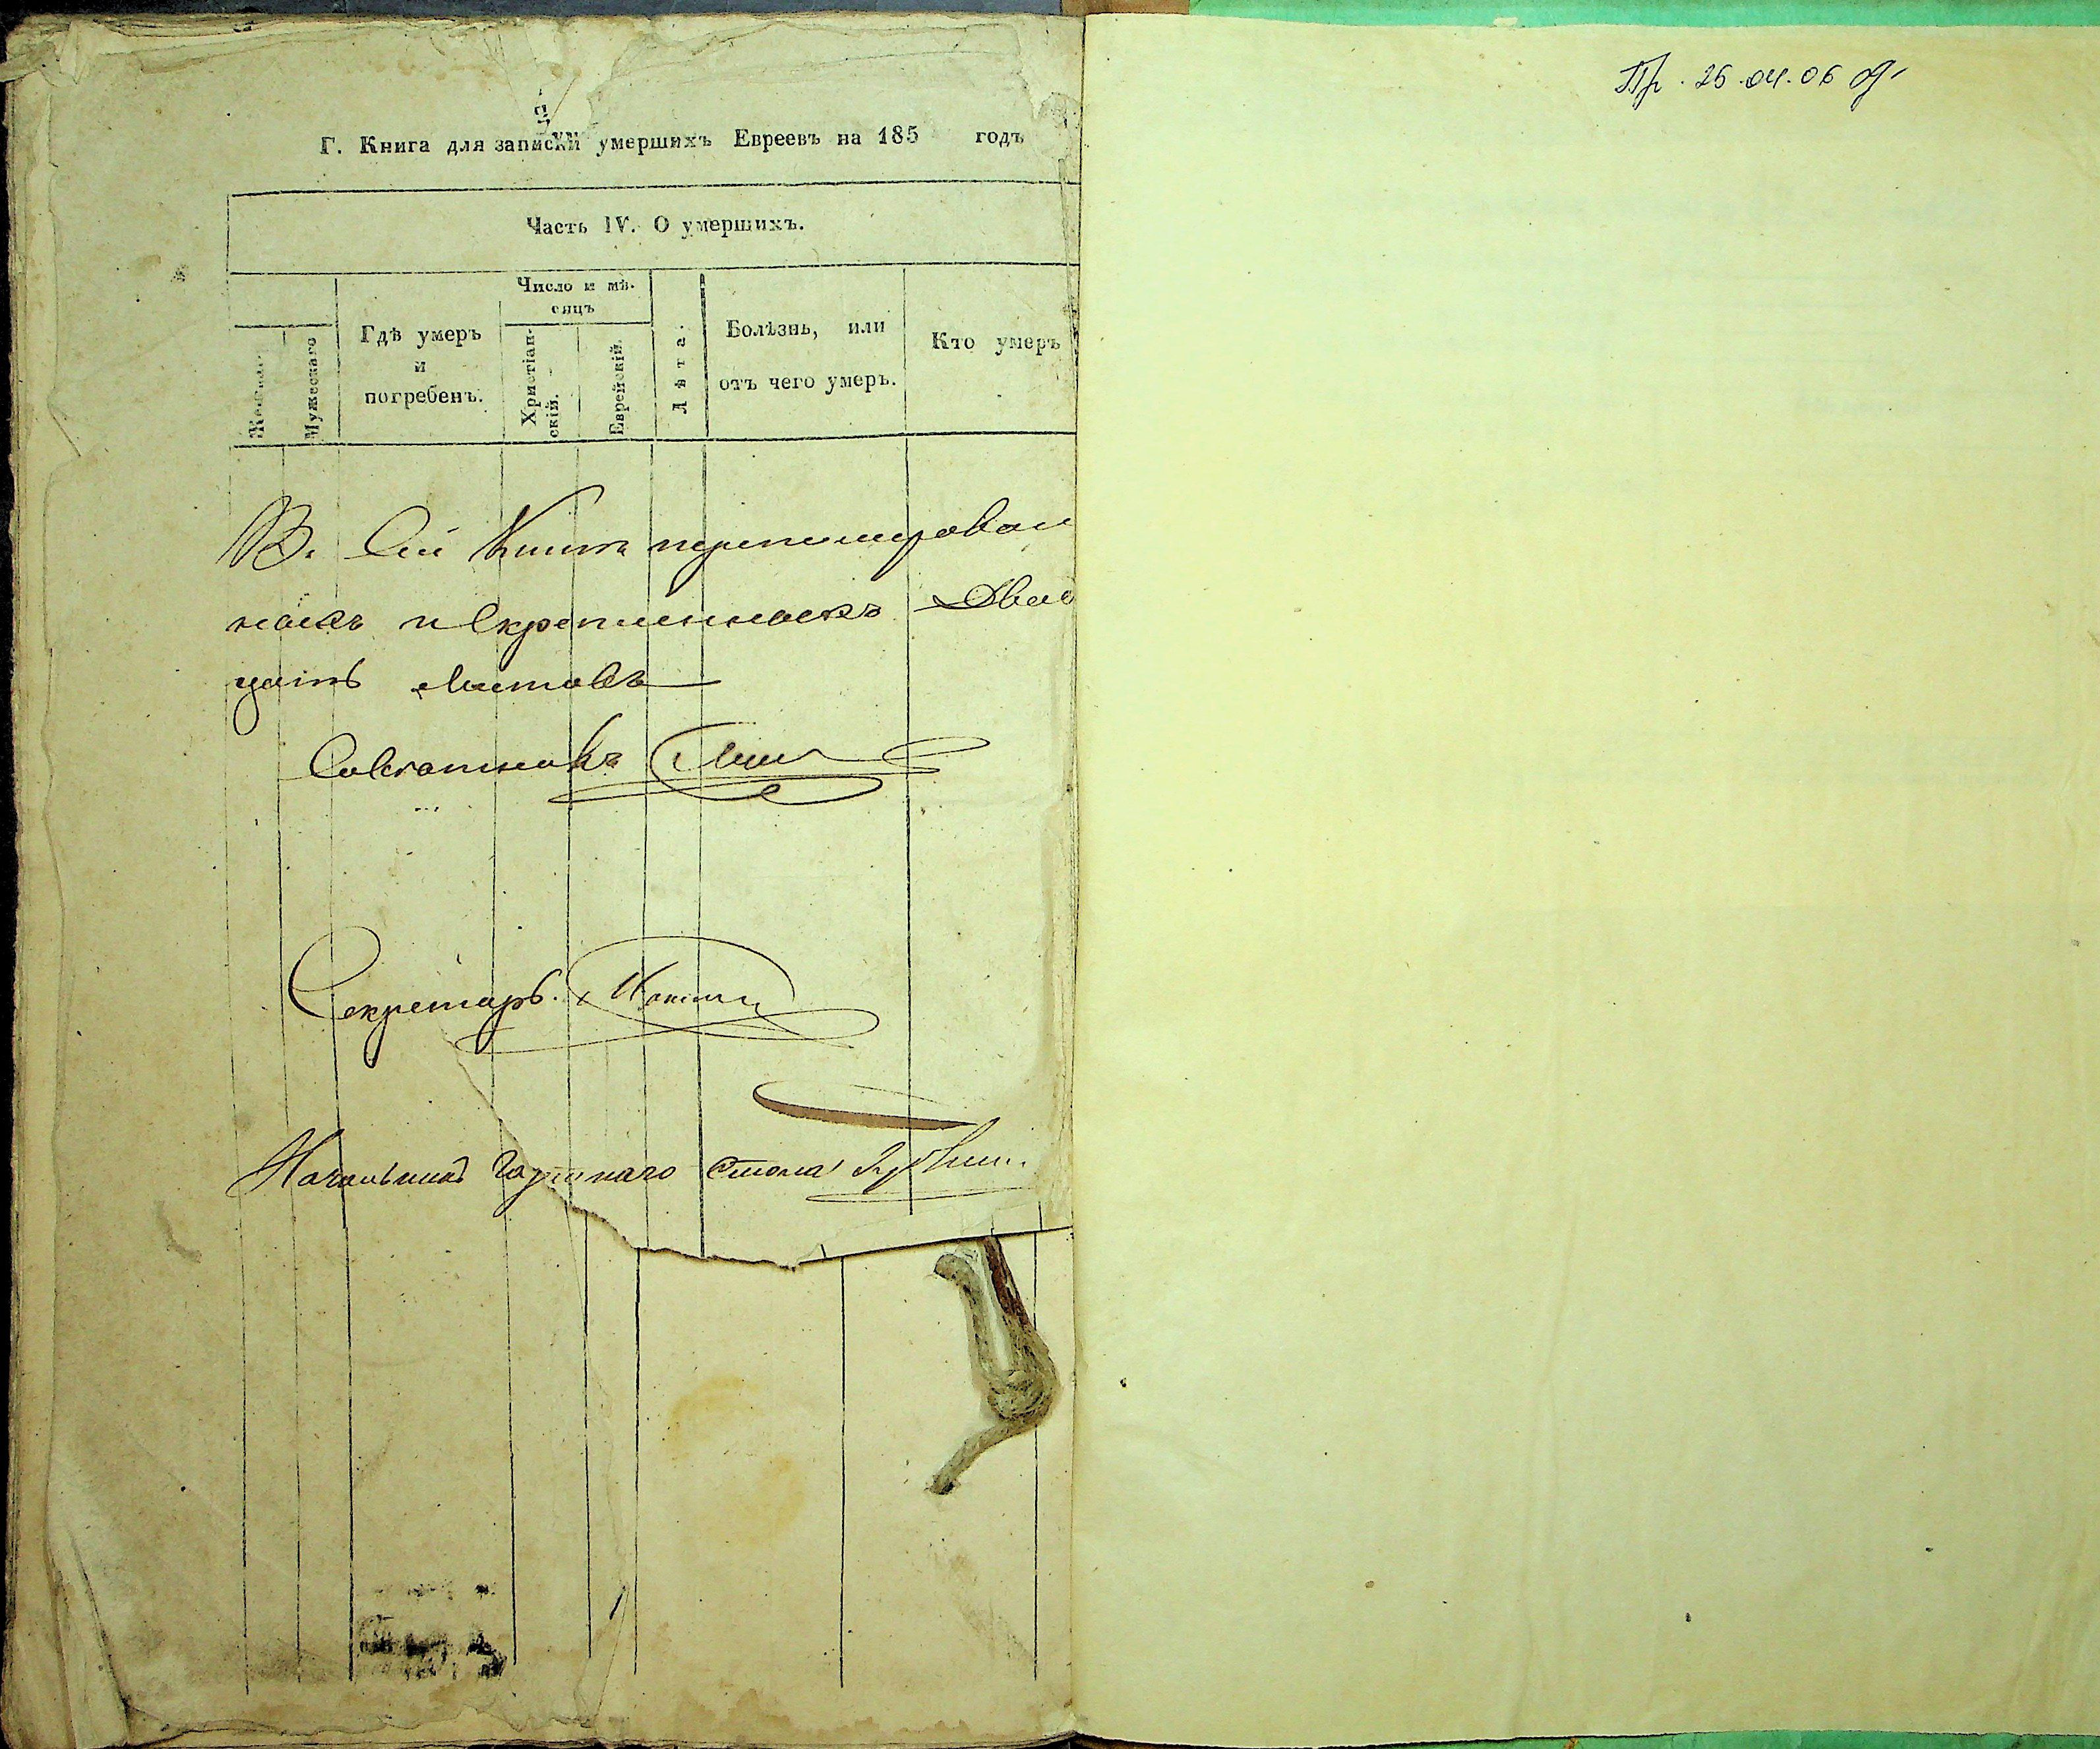 Пр. 26.04.06
Г. Книга для записки умершихъ Евреевъ на 185 годъ
Часть IV. О умершихъ.
Женскаго
Мужескаго
Гдѣ умеръ
и
погребенъ.
Число и мѣ-
сяцъ
Христіан-
скій.
Еврейскій.
Лѣта.
Болѣзнь, или
отъ чего умеръ.
Кто умеръ
Въ Сей Книгѣ
нныхъ и Скрепленныхъ Двад
цать Листовъ
Совѣтникъ
Секретарь
Начальникъ Стола